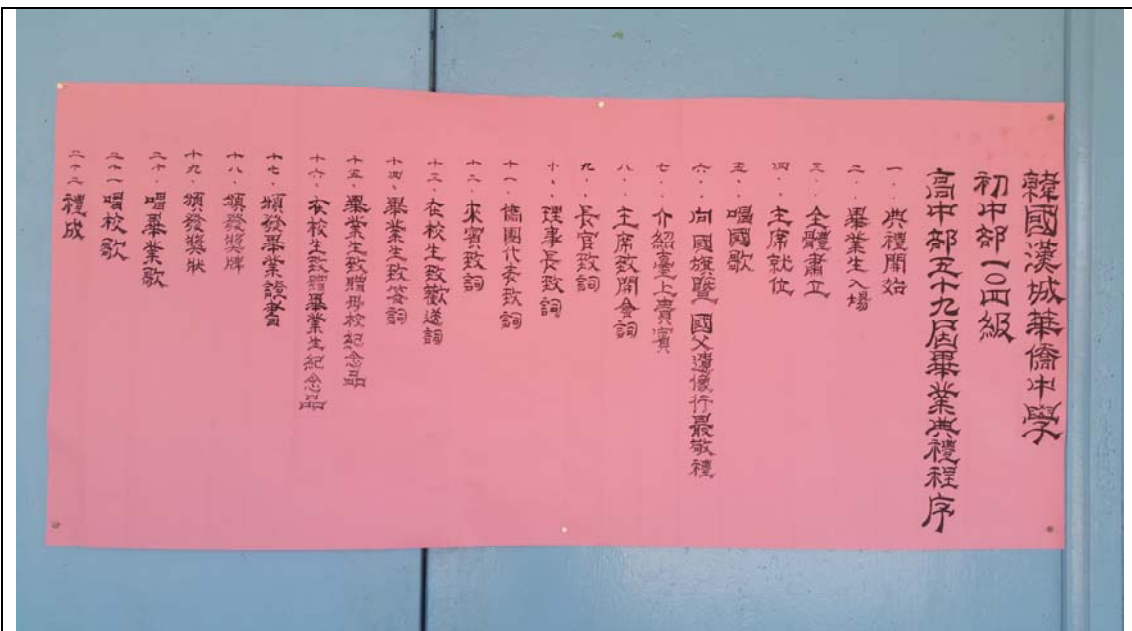 韓國漢城華僑中學
初中部一〇四級
高中部五十九屆畢業典禮程序
一．典禮開始
二．畢業生入場
三．全體肅立
四．主席就位
五．唱國歌
六．向國旗暨國父遺像行最敬禮
七．介紹臺上貴賓
八．主席致開會詞
九．長官致詞
十．理事長致詞
十一．僑團代表致詞
十二．來賓致詞
十三．在校生致歡送詞
十四．畢業生致答詞
十五．畢業生致贈母校紀念品
十六．在校生致贈畢業生紀念品
十七．頒發畢業證書
十八．頒發獎牌
十九．頒發獎狀
二十．唱畢業歌
二十一唱校歌
二十二禮成